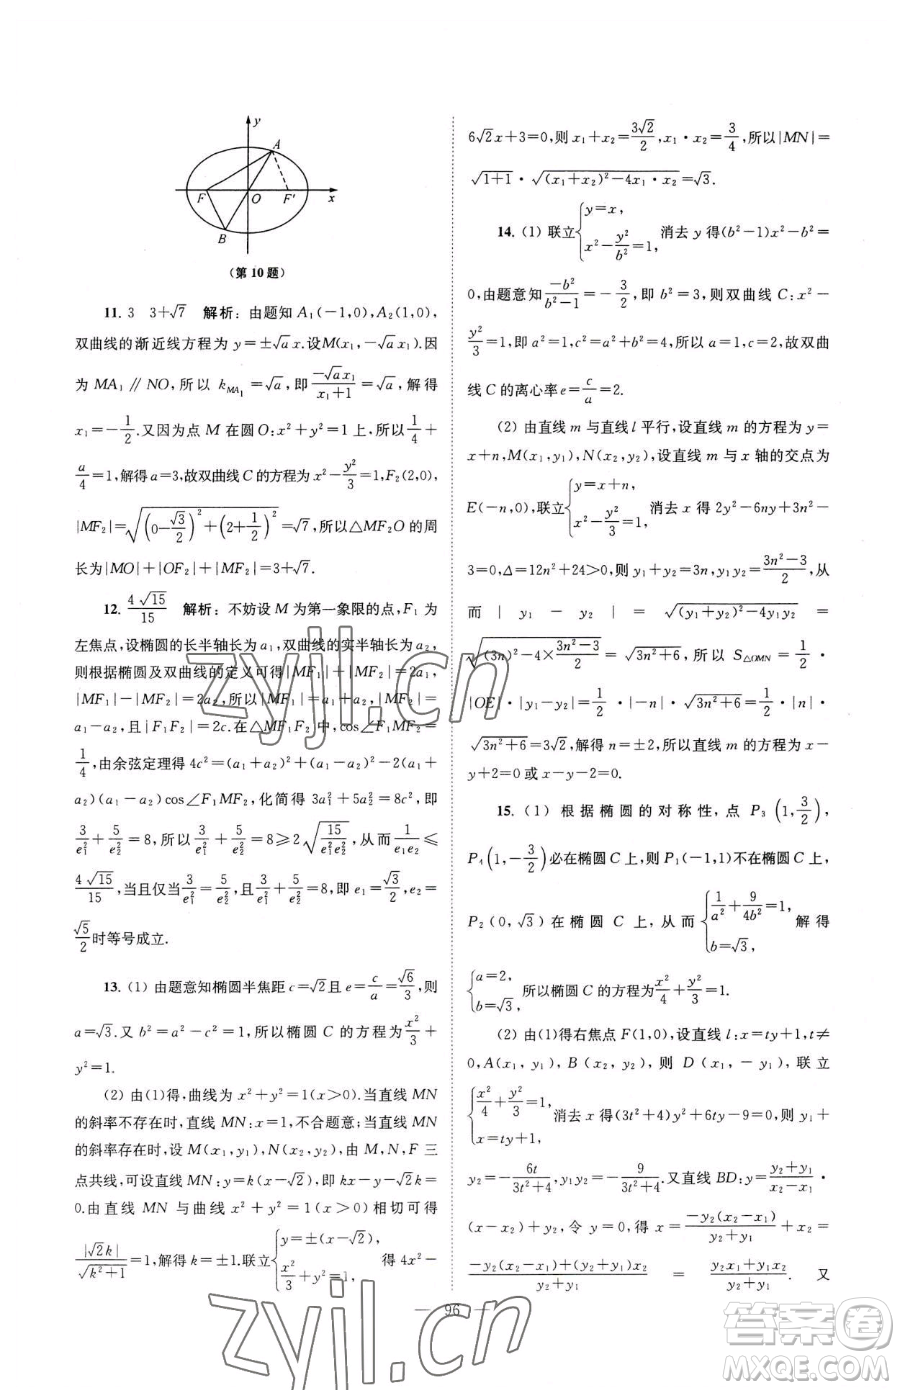 y
A
F
O
F′
x
B
(第 10 题)
11. 3　3+√7　解析：由题知 A₁(-1,0),A₂(1,0),
双曲线的渐近线方程为 y=±√a x. 设M(x₁,-√a x₁). 因
为 MA₁∥NO, 所以 k_{MA₁}=√a, 即 (-√a x₁)/(x₁+1)=√a, 解得
x₁=-1/2. 又因为点 M 在圆O:x²+y²=1 上, 所以 1/4+
a/4=1, 解得 a=3, 故双曲线 C 的方程为 x²-y²/3=1,F₂(2,0),
|MF₂|=√((0-√3/2)²+(2+1/2)²)=√7, 所以△MF₂O 的周
长为|MO|+|OF₂|+|MF₂|=3+√7.
12. 4√15/15　解析：不妨设 M 为第一象限的点,F₁ 为
左焦点, 设椭圆的长半轴长为 a₁, 双曲线的实半轴长为 a₂,
则根据椭圆及双曲线的定义可得|MF₁|+|MF₂|=2a₁,
|MF₁|-|MF₂|=2a₂, 所以|MF₁|=a₁+a₂,|MF₂|=
a₁-a₂, 且|F₁F₂|=2c. 在△MF₁F₂ 中,cos∠F₁MF₂=
1/4, 由余弦定理得 4c²=(a₁+a₂)²+(a₁-a₂)²-2(a₁+
a₂)(a₁-a₂)cos∠F₁MF₂, 化简得 3a₁²+5a₂²=8c², 即
3/e₁²+5/e₂²=8, 所以 3/e₁²+5/e₂²=8≥2√(15/(e₁²e₂²)), 从而 1/(e₁e₂)≤
4√15/15, 当且仅当 3/e₁²+3/e₁²=5/e₂²=8, 即 e₁=√3/2, e₂=
√5/2时等号成立.
13. (1) 由题意知椭圆半焦距 c=√2且 e=c/a=√6/3, 则
a=√3. 又 b²=a²-c²=1, 所以椭圆 C 的方程为x²/3+
y²=1.
(2) 由(1)得, 曲线为 x²+y²=1(x>0). 当直线 MN
的斜率不存在时, 直线 MN:x=1, 不合题意; 当直线 MN
的斜率存在时, 设 M(x₁,y₁),N(x₂,y₂), 由 M,N,F 三
点共线, 可设直线MN:y=k(x-√2), 即 kx-y-√2k=
0. 由直线 MN 与曲线 x²+y²=1(x>0) 相切可得
|√2k|/√(k²+1)=1, 解得 k=±1. 联立{y=±(x-√2), x²/3+y²=1, 得 4x²-
6√2x+3=0, 则 x₁+x₂=3√2/2,x₁·x₂=3/4, 所以|MN|=
√(1+1)·√((x₁+x₂)²-4x₁·x₂)=√3.
14. (1) 联立{y=x, x²-y²/b²=1, 消去 y 得(b²-1)x²-b²=
0, 由题意知 -b²/(b²-1)=-3/2, 即 b²=3, 则双曲线 C:x²-
y²/3=1, 即 a²=1,c²=1+b²=4, 所以 a=1,c=2, 故双曲
线 C 的离心率 e=c/a=2.
(2) 由直线 m 与直线 l 平行, 设直线 m 的方程为 y=
x+n,M(x₁,y₁),N(x₂,y₂), 设直线 m与 x 轴的交点为
E(-n,0), 联立{y=x+n, x²-y²/3=1, 消去 x 得 2y²-6ny+3n²-
3=0,Δ=12n²+24>0, 则 y₁+y₂=3n,y₁y₂=(3n²-3)/2, 从
而 |y₁-y₂|=√((y₁+y₂)²-4y₁y₂)=
√((3n)²-4×(3n²-3)/2)=√(3n²+6), 所以 S△OMN=1/2·
|OE|·|y₁-y₂|=1/2·|-n|·√(3n²+6)=1/2·|n|·
√(3n²+6)=3√2, 解得 n=±2, 所以直线 m 的方程为 x-
y+2=0 或 x-y-2=0.
15. (1) 根据椭圆的对称性, 点 P₃(1,3/2),
P₄(1,-3/2)必在椭圆 C 上, 则 P₁(-1,1)不在椭圆 C 上,
P₂(0,√3) 在椭圆 C 上, 从而{1/a²+9/(4b²)=1, b=√3, 解得
{a=2, b=√3, 所以椭圆 C 的方程为x²/4+y²/3=1.
(2) 由(1)得右焦点 F(1,0), 设直线 l:x=ty+1,t≠
0,A(x₁,y₁),B(x₂,y₂), 则 D(x₁,-y₁), 联立
{x²/4+y²/3=1, x=ty+1, 消去 x 得(3t²+4)y²+6ty-9=0, 则 y₁+
y₂=-6t/(3t²+4),y₁y₂=-9/(3t²+4). 又直线 BD:y=(y₂+y₁)/(x₂-x₁)
·(x-x₂)+y₂, 令 y=0, 得 x=-y₂(x₂-x₁)/(y₂+y₁)+x₂=
(-y₂(x₂-x₁)+(y₂+y₁)x₂)/(y₂+y₁)=(y₂x₁+y₁x₂)/(y₂+y₁). 又
— 96 —
zyjl.cn
zyjl.cn
答案圈
MXQE.COM